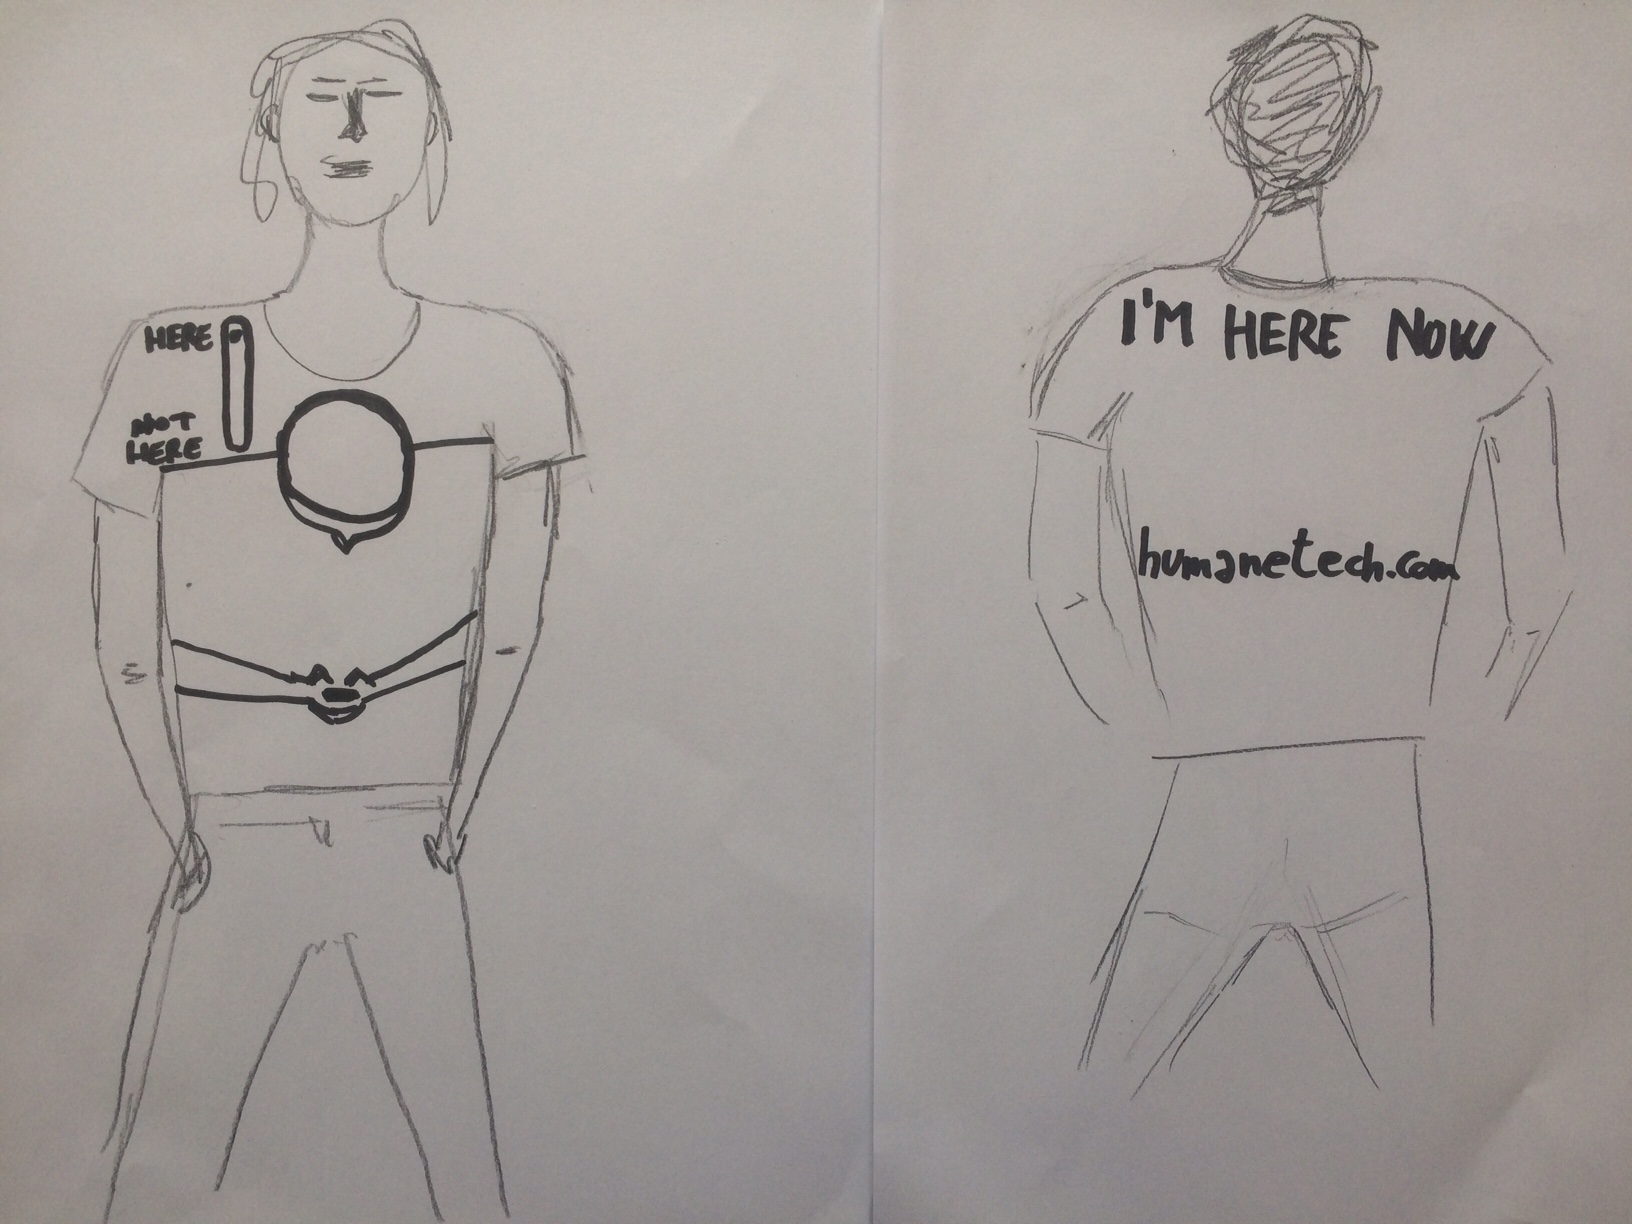 HERE
NOT
HERE
I'M HERE NOW
humanetech.com